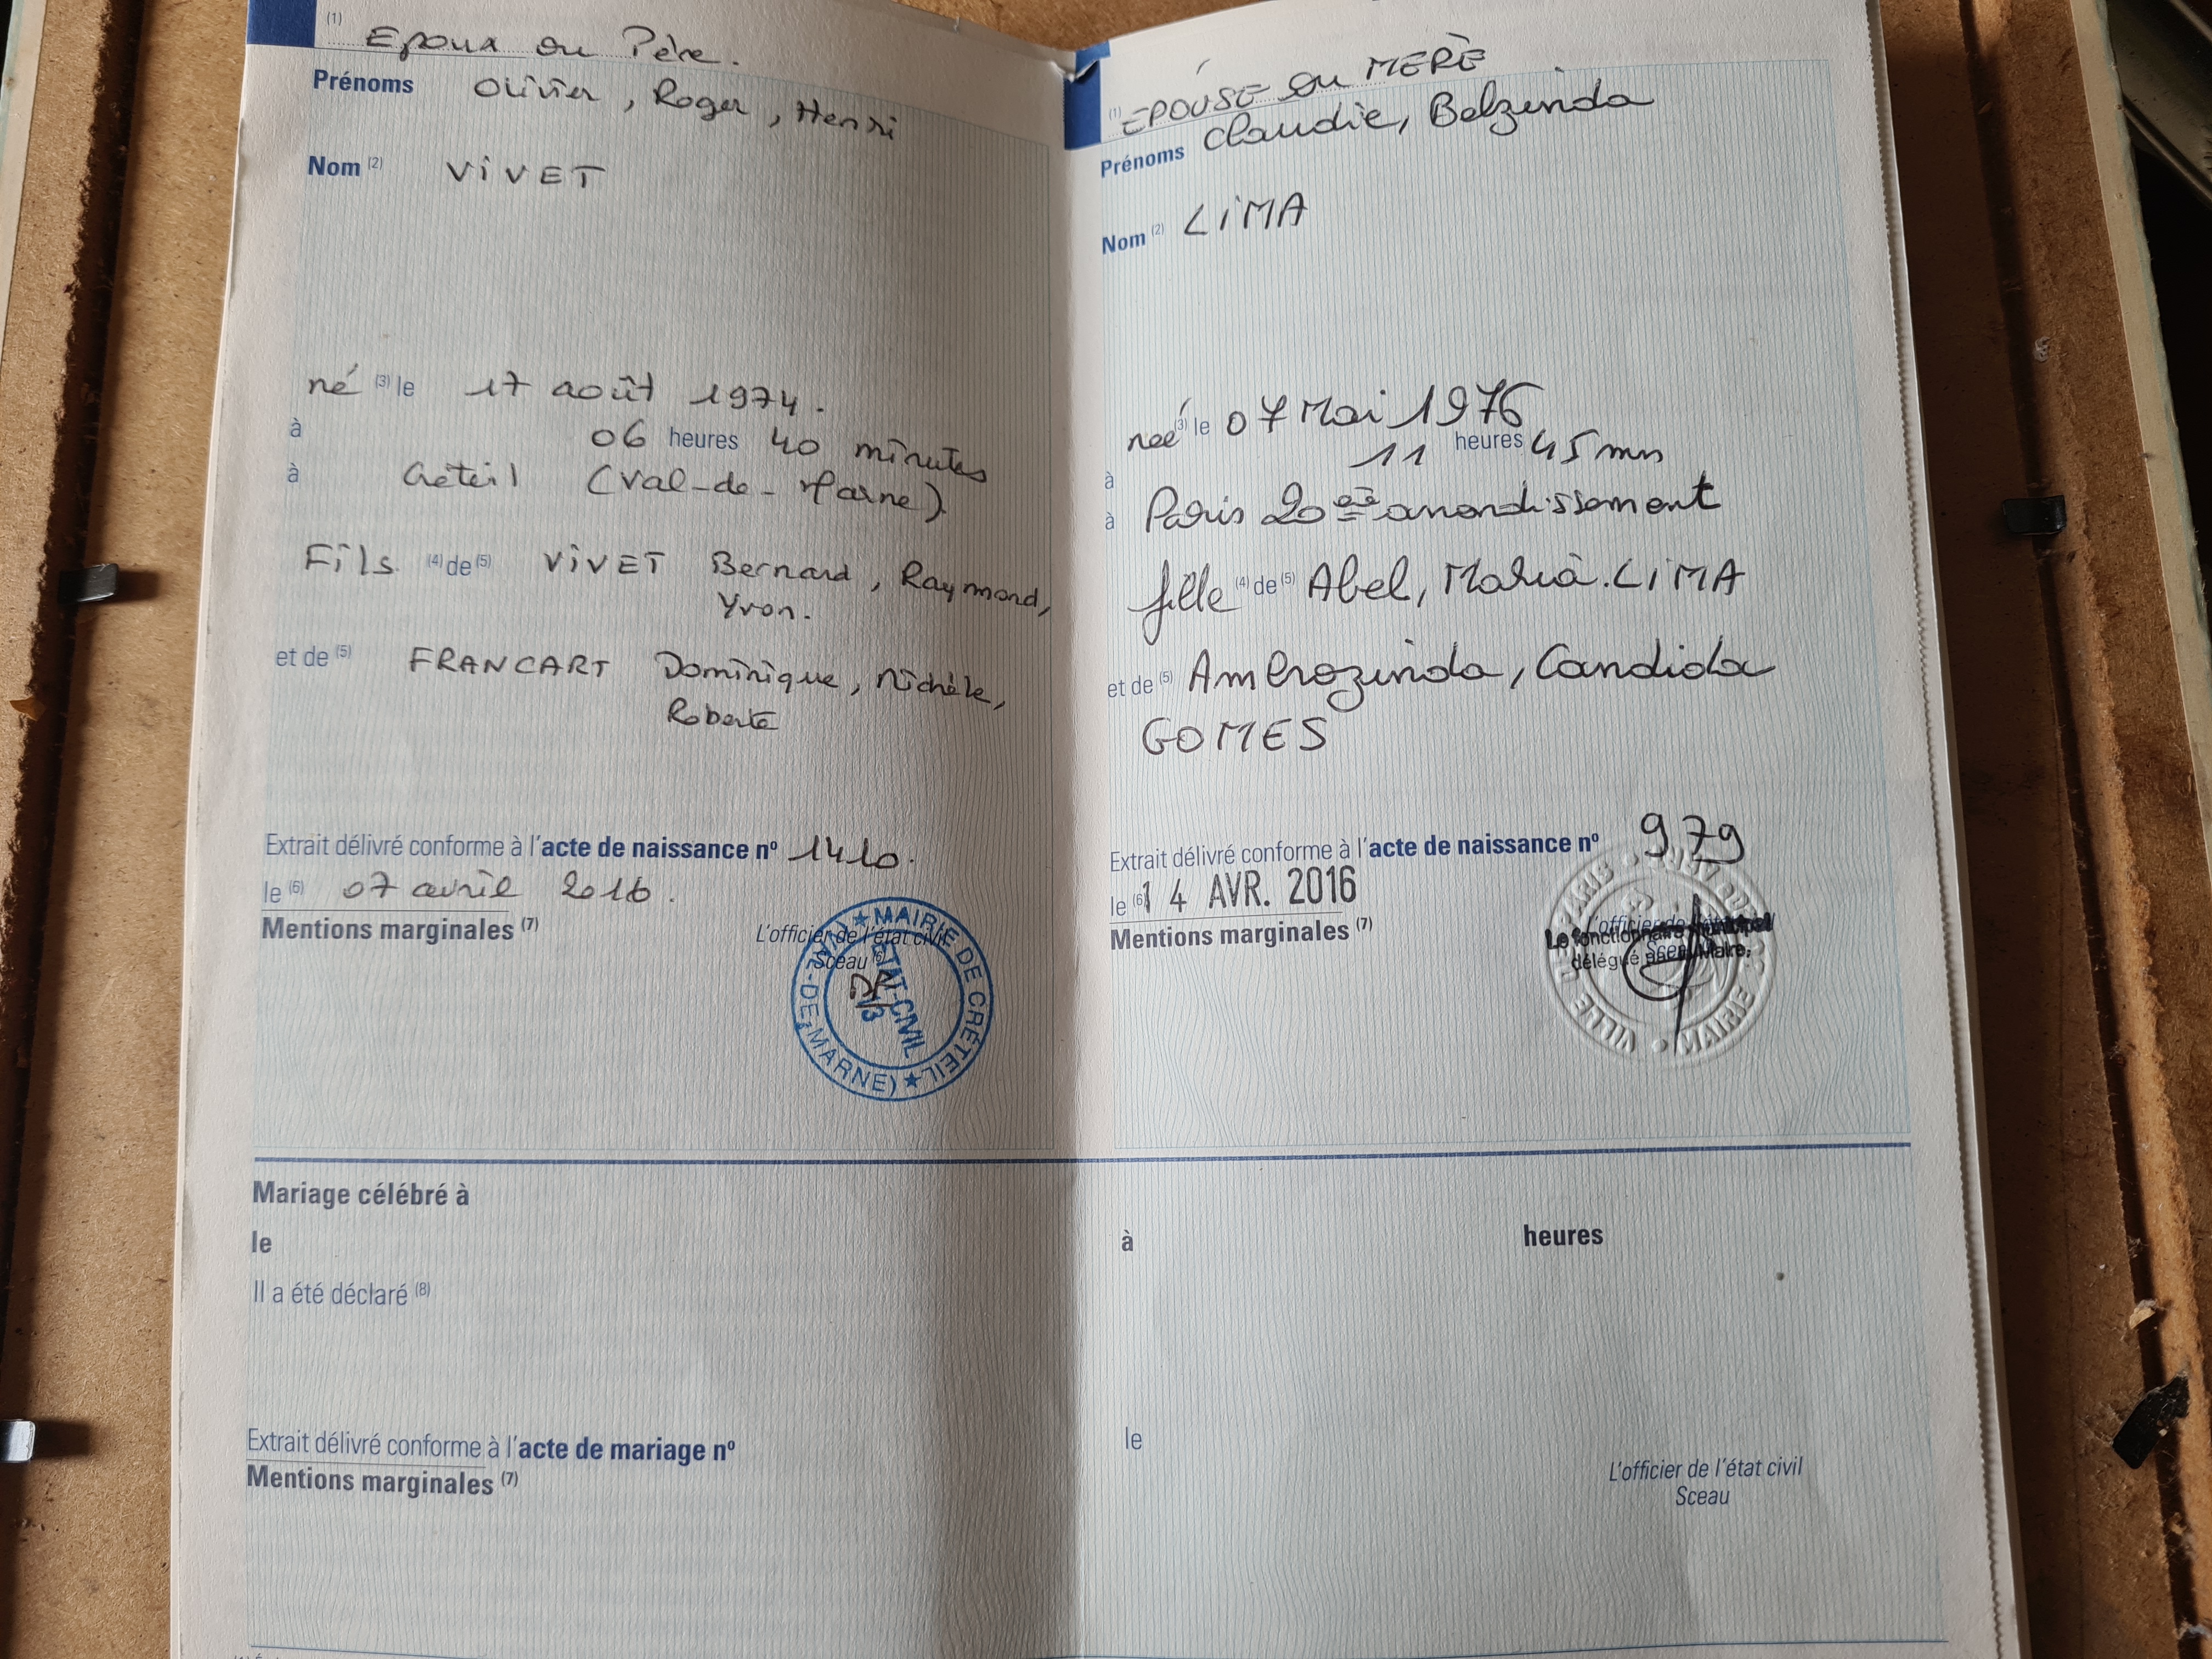 (1) Epoux ou Père.
Prénoms Olivier, Roger, Henri
Nom (2) ViVET
né (3) le 17 août 1974.
à 06 heures 40 minutes
à Créteil (Val-de-Marne)
Fils (4) de (5) ViVET Bernard, Raymond,
Yvon.
et de (5) FRANCART Dominique, Michèle,
Roberte
Extrait délivré conforme à l'acte de naissance nº 1410.
le (6) 07 avril 2016.
Mentions marginales (7)
L'officier de l'état civil
Sceau (6)
★ MAIRIE DE CRÉTEIL ★ (VAL-DE-MARNE)
ETAT-CIVIL
(1) EPOUSE ou MERÈ
Prénoms Claudie, Belzinda
Nom (2) LiMA
née (3) le 07 Mai 1976
à 11 heures 45 mn
à Paris 20 arrondissement
fille (4) de (5) Abel, Maria. LiMA
et de (5) Ambrozinda, Candida
GOMES
Extrait délivré conforme à l'acte de naissance nº 979
le (6) 14 AVR. 2016
Mentions marginales (7)
L'officier de l'état civil
Le fonctionnaire municipal
délégué par le Maire,
VILLE DE PARIS • MAIRIE DU
Mariage célébré à
le à heures
Il a été déclaré (8)
Extrait délivré conforme à l'acte de mariage nº le
Mentions marginales (7)
L'officier de l'état civil
Sceau